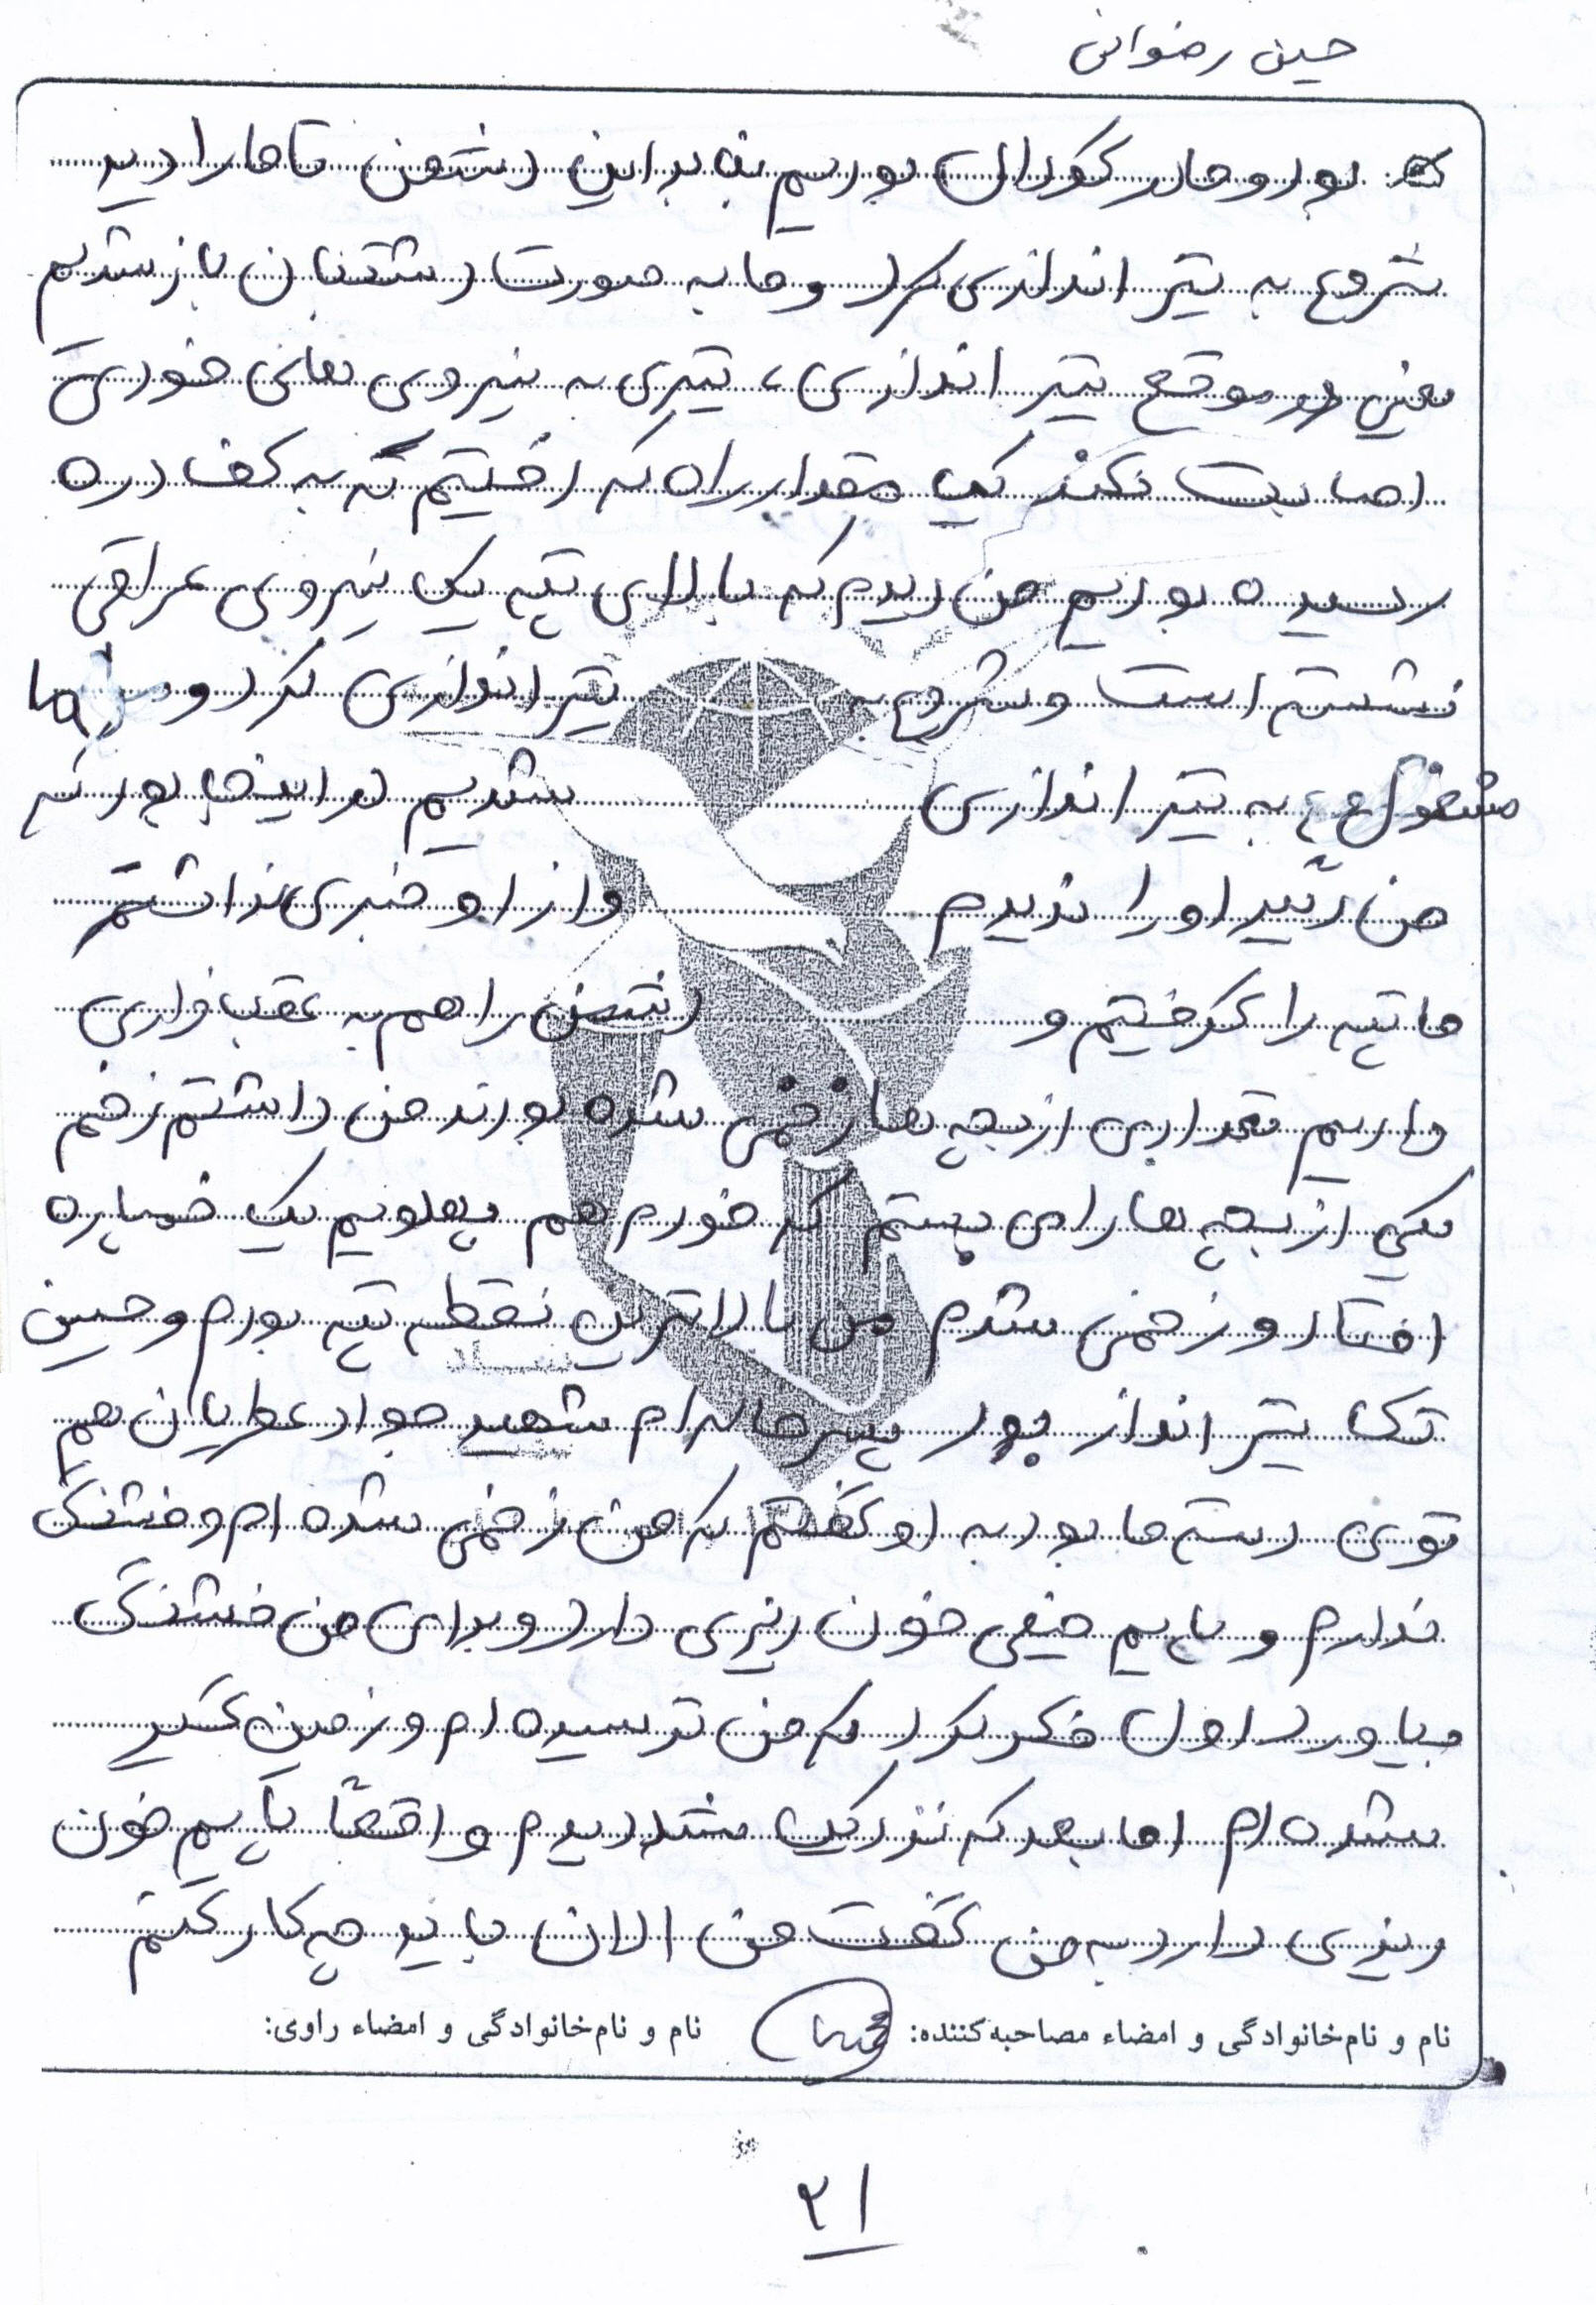 حسین رضوانی
بود و ما در گودال بودیم بنابراین دشمن تا ما را دید
شروع به تیر اندازی کرد و ما به صورت دشتبان باز شدیم
یعنی در موقع تیر اندازی، تیری به نیروی های خودی
اصابت نکند یک مقدار راه که رفتیم که به کف دره
رسیده بودیم من دیدم که بالای تپه یک نیروی عراقی
نشسته است و شروع به تیر اندازی کرد و ما
مشغول به تیر اندازی شدیم در اینجا بود که
من دیگر او را ندیدم و از او خبری نداشتم
ما تپه را گرفتیم و دشمن را هم به عقب فراری
دادیم تعدادی از بچه ها زخمی شده بودند من داشتم زخم
یکی از بچه ها را می بستم که خودم هم پهلویم یک خمپاره
افتاد و زخمی شدم من بالاترین نقطه تپه بودم و حسین
تک تیر انداز بود پسر خاله ام شهید جواد عطریان هم
توی دسته ما بود به او گفتم که من زخمی شده ام و فشنگ
ندارم و پایم خیلی خون ریزی دارد و برای من فشنگ
بیاورد اول فکر کرد که من ترسیده ام و زمین گیر
شده ام اما بعد که نزدیک شد دیدم واقعاً پایم خون
ریزی دارد به من گفت من الان باید چه کار کنم
نام و نام‌خانوادگی و امضاء مصاحبه‌کننده: نام و نام‌خانوادگی و امضاء راوی:
۲۱